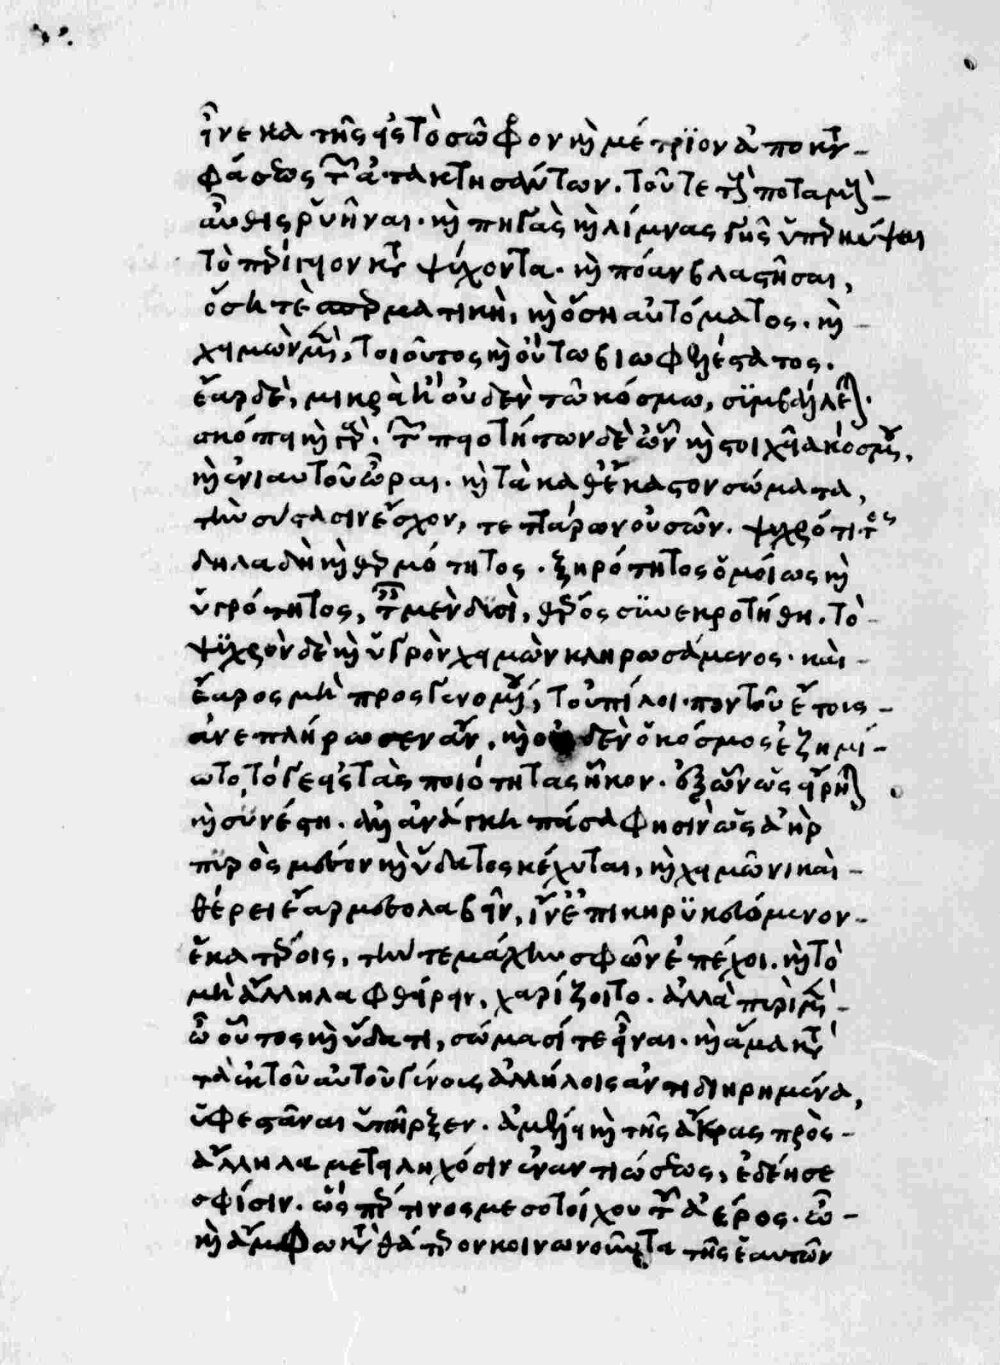 ἵνεκα τῆς εἰς τὸ σῶφρον καὶ μέτριον ἀποκ
φάσεως τὰ κτησάντων. τοῦτε ποταμ
αὖθις ῥυῆναι. καὶ πηγὰς καὶ λίμνας γῆς
τὸ ψύχοντα. καὶ πόαν βλαστῆσαι,
ὅση τὲ σπερματικὴ, καὶ ὅση αὐτόματος. καὶ
χειμὼν μὲν, τοιοῦτος καὶ οὕτω βιωφελέστατος.
ἔαρ δὲ, μικρὰ ἢ οὐδὲν τῶ κόσμω, συμβάλλεται.
σκόπει καὶ τῶν ποιοτήτων δὲ ὧν καὶ στοιχεῖα κόσμου,
καὶ ἐνιαυτοῦ ὧραι. καὶ τὰ καθέκαστον σώματα,
τὴν σύστασιν ἔσχον, τεττάρων οὐσῶν. ψυχρότητος
δηλαδὴ καὶ θερμότητος. ξηρότητος ὁμοίως καὶ
ὑγρότητος, τῶν μὲν δυσὶ, θέρος συνεκροτήθη. τὸ
ψυχρὸν δὲ καὶ ὑγρὸν χειμὼν κληρωσάμενος. καὶ
ἔαρος μὴ προσγενομένου, τοὐπίλοιπον τοῦ ἔτους
ἀνεπλήρωσεν ἂν, καὶ οὐδὲν ὁ κόσμος ἐζημί
ωτο, τό γε εἰς τὰς ποιότητας ἧκον. ἐξ ὧν ὡς εἴρηται
καὶ συνέστη. ἀλλ' ἀνάγκη πᾶσα φησὶν ὡς ἀὴρ
πυρὸς μέσον καὶ ὕδατος κέχυται, καὶ χειμῶνι καὶ
θέρει ἔαρ μεσολαβεῖν, ἵν' ἐπικηρυκευόμενον
ἑκατέροις, τήν τε μάχην σφῶν ἐπέχοι. καὶ τὸ
μὴ ἄλληλα φθείρειν, χαρίζοιτο. ἀλλὰ πυρὶ μὲν
ὦ οὗτος καὶ ὕδατι, σώμασί τε εἶναι. καὶ ἅμα
τὰ ἐκ τοῦ αὐτοῦ γένους ἀλλήλοις ἀντιδιῃρημένα,
ὑφεστᾶναι ὑπῆρξεν. ἀμέλει καὶ τῆς ἄκρας πρὸς
ἄλληλα μετειληχόσιν ἐναντιώσεως, ἐδέησε
σφίσιν. ὥσπερ τινὸς μεσοτοίχου τοῦ ἀέρος. ὦ
καὶ ἄμφω καθάτερον κοινωνοῦντα τῆς ἑαυτῶν